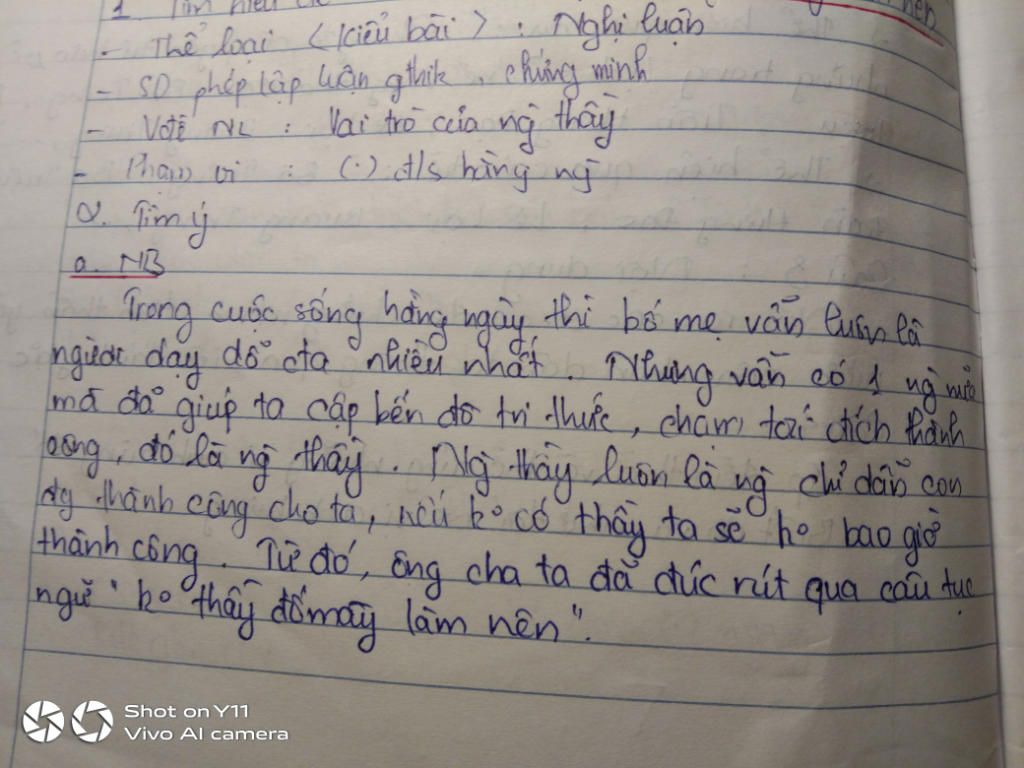 1. Tìm hiểu
nên
- Thể loại <Kiểu bài> : Nghị luận
- SD phép lập luận gthik, chứng minh
- Vđề NL : Vai trò của ng thầy
- Phạm vi : (.) đ/s hằng ng
2. Tìm ý
a. MB
Trong cuộc sống hằng ngày thì bố mẹ vẫn luôn là
người dạy dỗ cta nhiều nhất. Nhưng vẫn có 1 ng nữa
mà đã giúp ta cập bến đò tri thức, chạm tới đích thành
công, đó là ng thầy. Ng thầy luôn là ng chỉ dẫn con
đg thành công cho ta, nếu ko có thầy ta sẽ ko bao giờ
thành công. Từ đó, ông cha ta đã đúc rút qua câu tục
ngữ "ko thầy đố mày làm nên".
Shot on Y11
Vivo AI camera